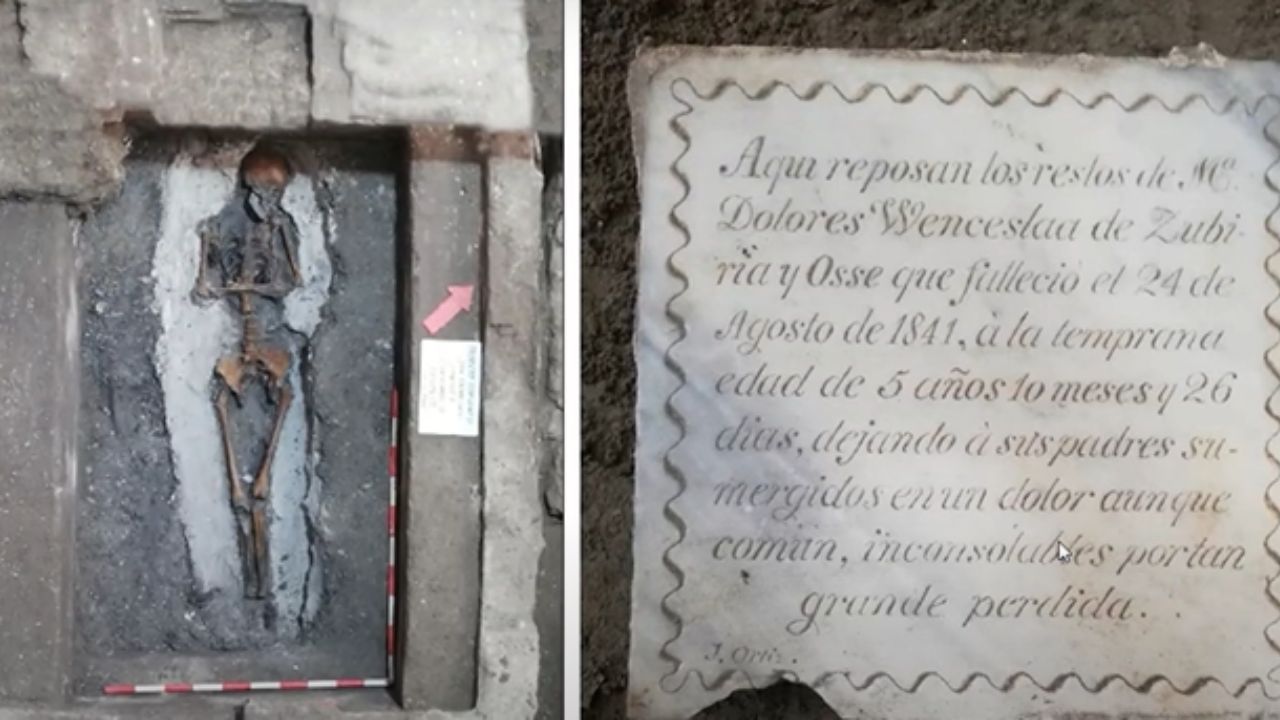 Aqui reposan los restos de Mª.
Dolores Wenceslaa de Zubi-
ria y Osse que fallecio el 24 de
Agosto de 1841, à la temprana
edad de 5 años 10 meses y 26
dias, dejando à sus padres su-
mergidos en un dolor aunque
comun, inconsolables por tan
grande perdida.
J. Ortiz.